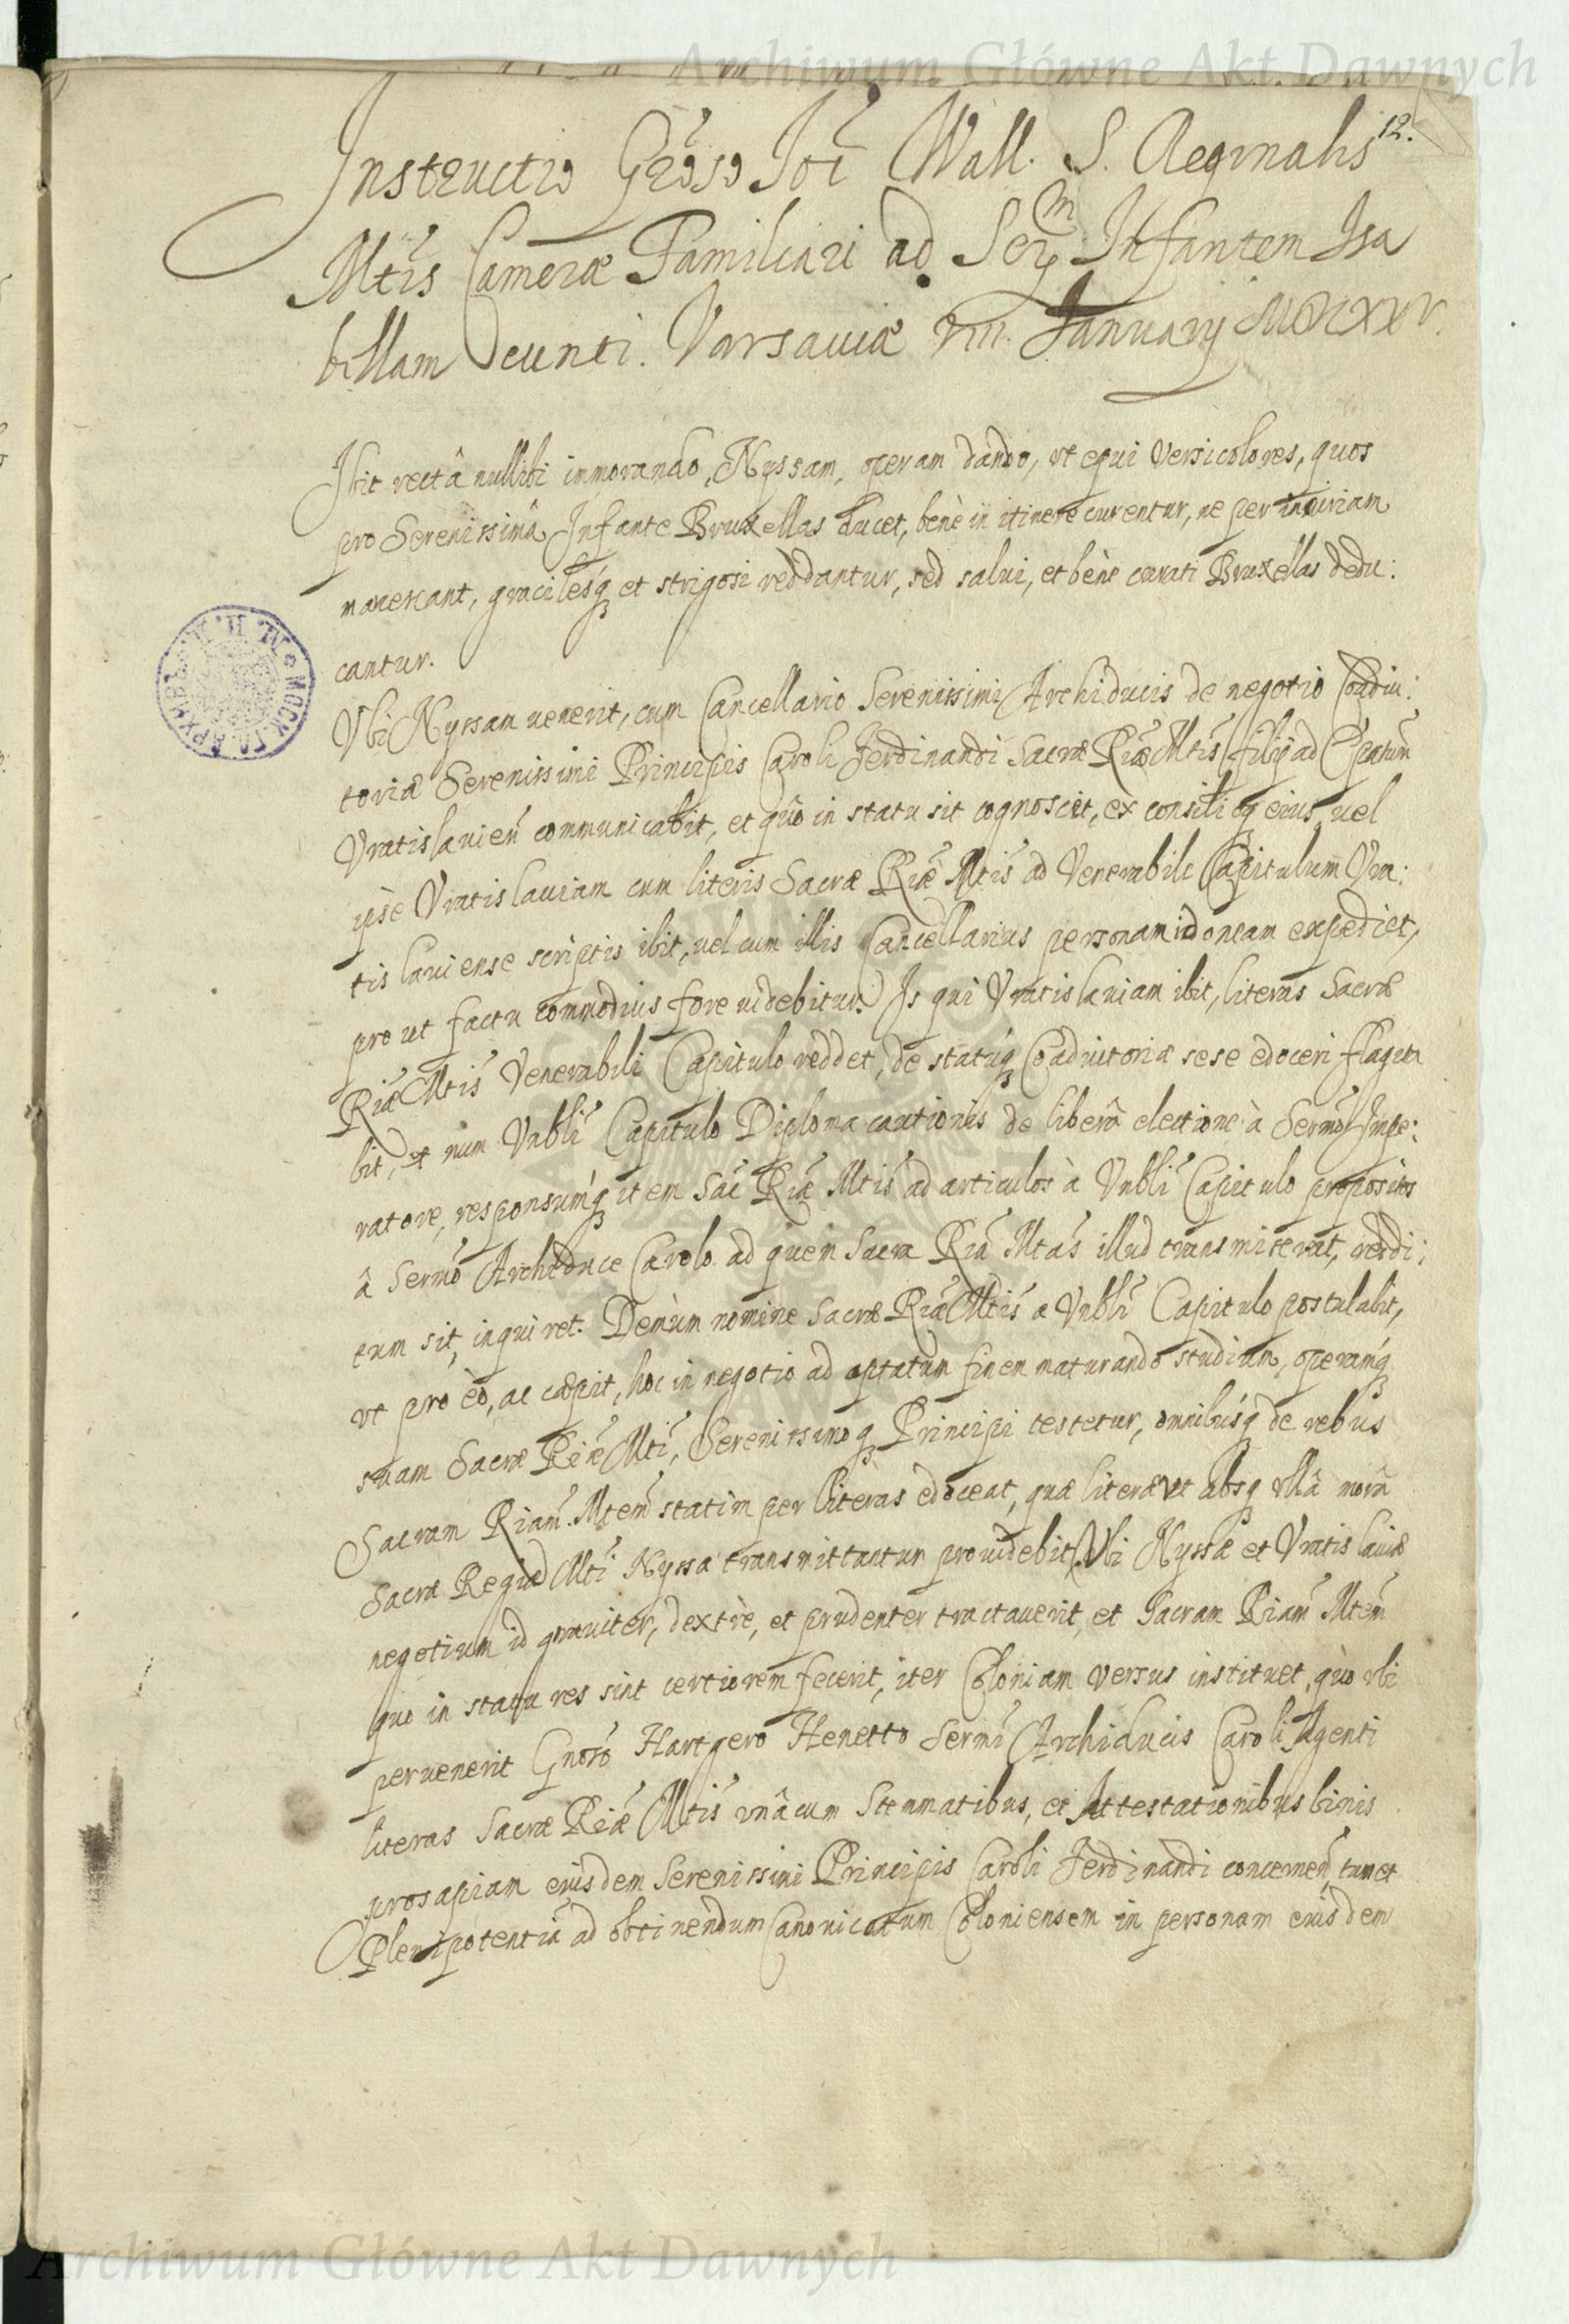 Archiwum Główne Akt Dawnych
12.
Instructio Gñoso Joi Wall. S. Reginalis
Mtis Cameræ Familiari ad Serm Infantem Isa
bellam eunti. Varsauiæ VIII. Januarij MDCXXV.
Ibit rectâ nullibi immorando, Nyssam, operam dando, vt equi versicolores, quos
pro Serenissimâ Infante Bruxellas ducet, benè in itinere curentur, ne per incuriam
marcescant, gracilesq et strigosi reddantur, sed salui, et bène curati Bruxellas dedu:
cantur.
Vbi Nyssam uenerit, cum Cancellario Serenissimi Archiducis de negotio Coadiu:
toriæ Serenissimi Principis Caroli Ferdinandi Sacræ Riæ Mtis filij ad Epatum
Vratislauien communicabit, et quo in statu sit cognoscet, ex consilioq eius, uel
ipse Vratislauiam cum literis Sacræ Riæ Mtis ad Venerabile Capitulum Vra:
tislauiense scriptis ibit, uel cum illis Cancellarius personam idoneam expediet,
pro ut factu commodius fore uidebitur. Is qui Vratislauiam ibit, literas Sacræ
Riæ Mtis Venerabili Capitulo reddet, de statuq Coadiutoriæ sese edoceri flagita
bit, et num Vnbli Capitulo Diploma cautionis de liberâ electione à Sermo Impe:
ratore, responsumq item Sac Riæ Mtis ad articulos à Vnbli Capitulo propositos
â Sermo Archiduce Carolo ad quem Sacra Ria Mtas illud transmiserat, reddi:
tum sit, inquiret. Demùm nomine Sacræ Riæ Mtis a Vnbli Capitulo postulabit,
vt pro èo, ac cæpit, hoc in negotio ad optatum finem maturando studium, operamq
suam Sacræ Riæ Mti, Serenissimoq Principi testetur, omnibusq de rebus
Sacram Riam Mtem statim per literas edoceat, quæ literæ vt absq vllâ morâ
Sacræ Regiæ Mti Nyssa transmittantur prouidebit. Vbi Nyssæ et Vratislauiæ
negotium id grauiter, dextrè, et prudenter tractauerit, et Sacram Riam Mtem
quo in statu res sint certiorem fecerit, iter Coloniam versus instituet, quò vbi
peruenerit Gnoso Hartgero Henetto Sermi Archiducis Caroli Agenti
literas Sacræ Riæ Mtis vnâcum Stemmatibus, et Attestationibus binis
prosapiam eiusdem Serenissimi Principis Caroli Ferdinandi concernen, tum et
Plenipotentiâ ad obtinendum Canonicatum Coloniensem in personam eiusdem
Archiwum Główne Akt Dawnych